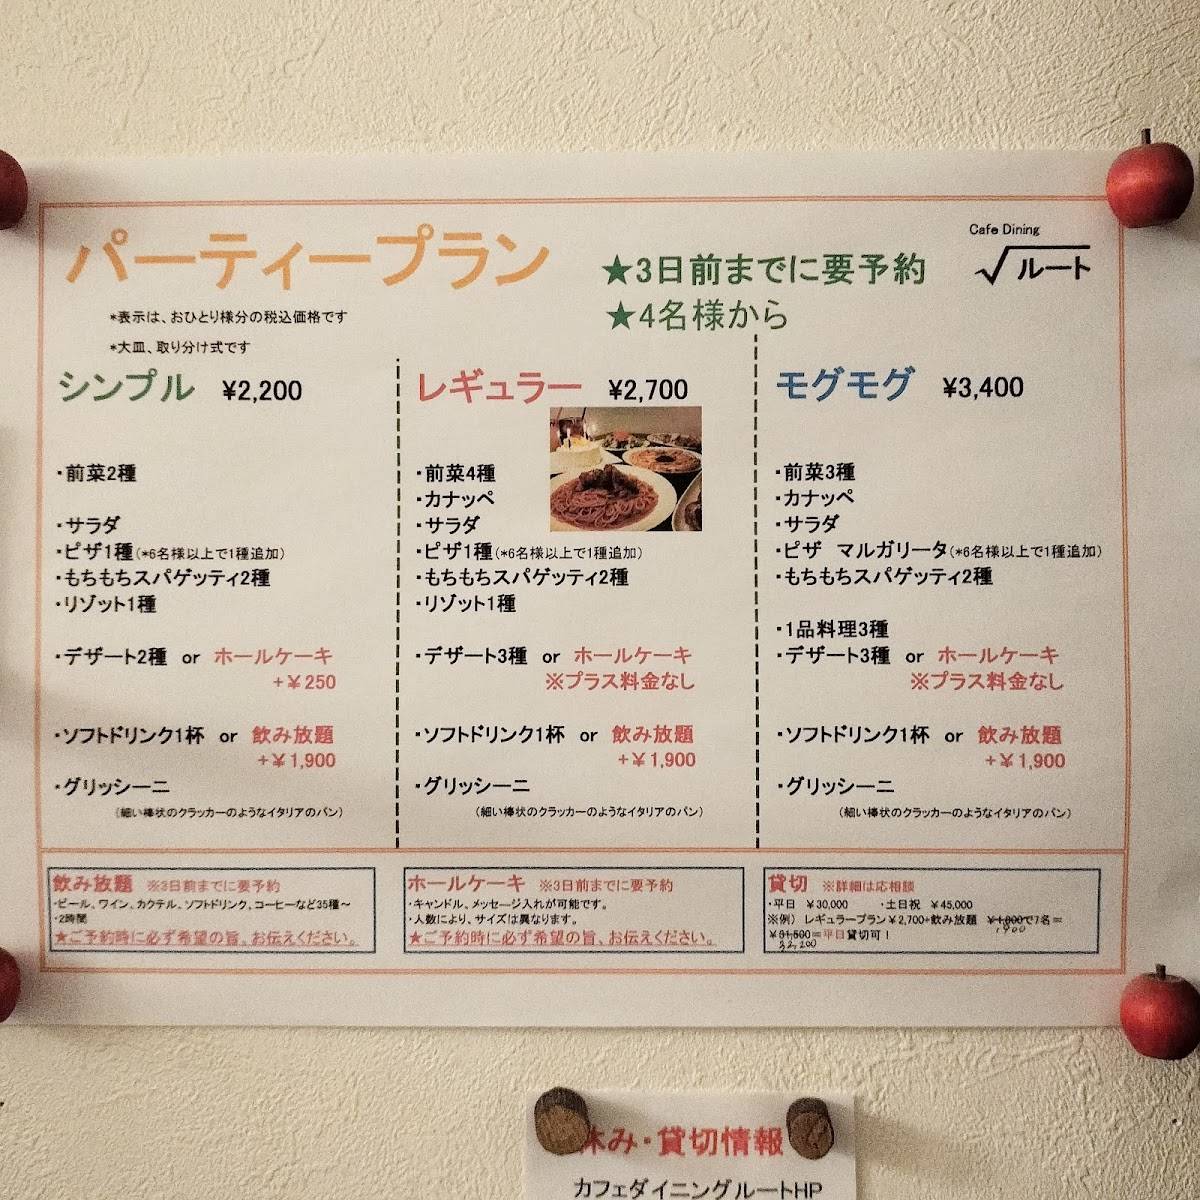 パーティープラン
★3日前までに要予約
★4名様から
Cafe Dining
√ルート
*表示は、おひとり様分の税込価格です
*大皿、取り分け式です
シンプル ¥2,200
・前菜2種
・サラダ
・ピザ1種(*6名様以上で1種追加)
・もちもちスパゲッティ2種
・リゾット1種
・デザート2種 or ホールケーキ
+¥250
・ソフトドリンク1杯 or 飲み放題
+¥1,900
・グリッシーニ
(細い棒状のクラッカーのようなイタリアのパン)
レギュラー ¥2,700
・前菜4種
・カナッペ
・サラダ
・ピザ1種(*6名様以上で1種追加)
・もちもちスパゲッティ2種
・リゾット1種
・デザート3種 or ホールケーキ
※プラス料金なし
・ソフトドリンク1杯 or 飲み放題
+¥1,900
・グリッシーニ
(細い棒状のクラッカーのようなイタリアのパン)
モグモグ ¥3,400
・前菜3種
・カナッペ
・サラダ
・ピザ マルガリータ(*6名様以上で1種追加)
・もちもちスパゲッティ2種
・1品料理3種
・デザート3種 or ホールケーキ
※プラス料金なし
・ソフトドリンク1杯 or 飲み放題
+¥1,900
・グリッシーニ
(細い棒状のクラッカーのようなイタリアのパン)
飲み放題 ※3日前までに要予約
・ビール、ワイン、カクテル、ソフトドリンク、コーヒーなど35種～
・2時間
★ご予約時に必ず希望の旨、お伝えください。
ホールケーキ ※3日前までに要予約
・キャンドル、メッセージ入れが可能です。
・人数により、サイズは異なります。
★ご予約時に必ず希望の旨、お伝えください。
貸切 ※詳細は応相談
・平日 ¥30,000 ・土日祝 ¥45,000
※例) レギュラープラン¥2,700+飲み放題 ¥1,800で7名=
1900
¥31,500=平日貸切可!
32,200
休み・貸切情報
カフェダイニングルートHP